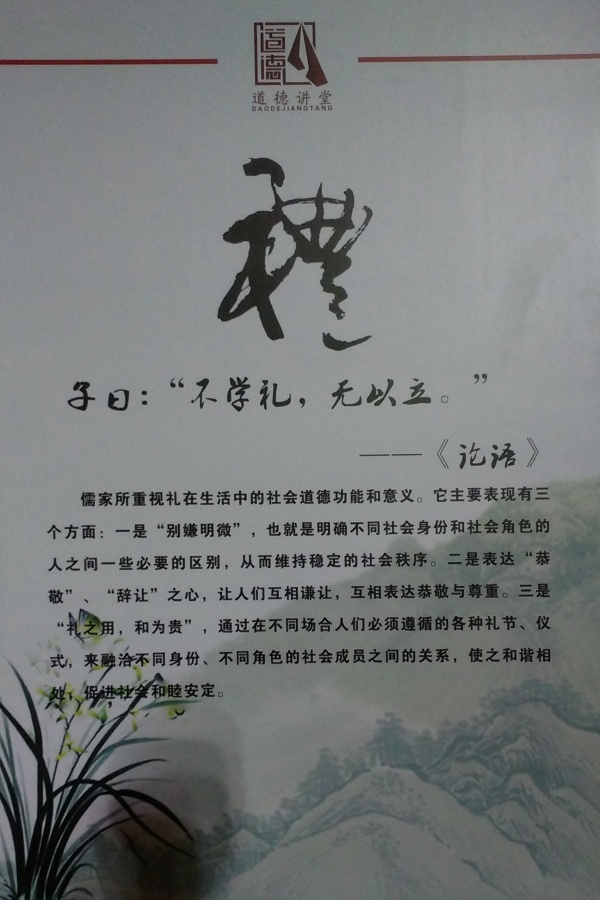 道德
道德讲堂
DAODEJIANGTANG
禮
子曰：“不学礼，无以立。”
——《论语》
儒家所重视礼在生活中的社会道德功能和意义。它主要表现有三
个方面：一是“别嫌明微”，也就是明确不同社会身份和社会角色的
人之间一些必要的区别，从而维持稳定的社会秩序。二是表达“恭
敬”、“辞让”之心，让人们互相谦让，互相表达恭敬与尊重。三是
“礼之用，和为贵”，通过在不同场合人们必须遵循的各种礼节、仪
式，来融洽不同身份、不同角色的社会成员之间的关系，使之和谐相
处，促进社会和睦安定。